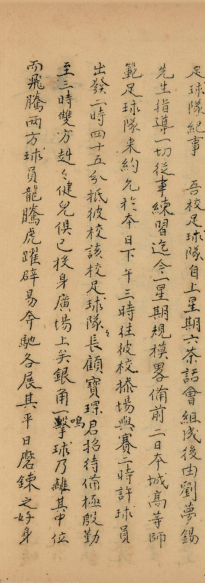 足球隊紀事　吾校足球隊自上星期六茶話會組成後由劉夢錫
先生指導一切從事練習迄今一星期規模畧備前二日本城高等師
範足球隊來約允於本日下午三時往彼校操場與賽二時許球員
出發二時四十五分抵彼校該校足球隊長顧寶琛君招待備極殷勤
至三時雙方赳々健兒俱已挨身廣場上矣銀角一鳴擊球乃離其中位
而飛騰兩方球員龍騰虎躍辟易奔馳各展其平日磨鍊之好身